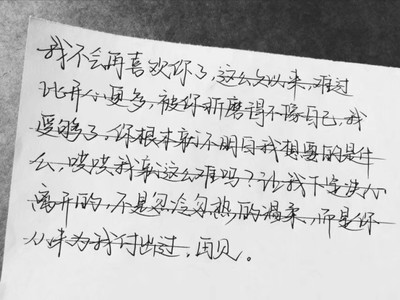 我不会再喜欢你了，这么久以来，难过
比开心更多，被你折磨得不像自己，我
受够了。你根本就不明白我想要的是什
么，哄哄我就这么难吗？让我下定决心
离开的，不是忽冷忽热的温柔，而是你
从未为我付出过，再见。